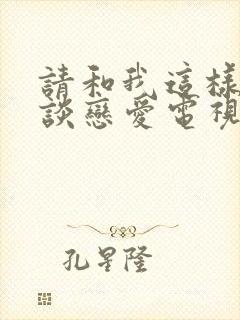 請和我這樣
談戀愛電視
孔星隆